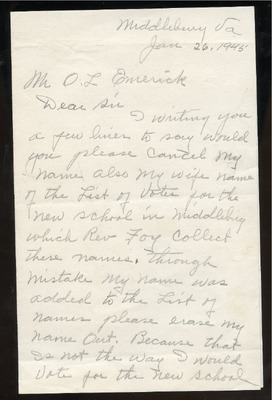 Middleburg Va
Jan 26, 1945
Mr O. L Emerick
Dear Sir
I writing you
a few lines to say would
you please Cancel My
Name also My wife name
of the List of Votes for the
New School in Middleburg
which Rev Foy Collect
there names. through
Mistake My name was
added to the List of
Names please erase my
Name Out. Because that
Is not the Way I would
Vote for the New School